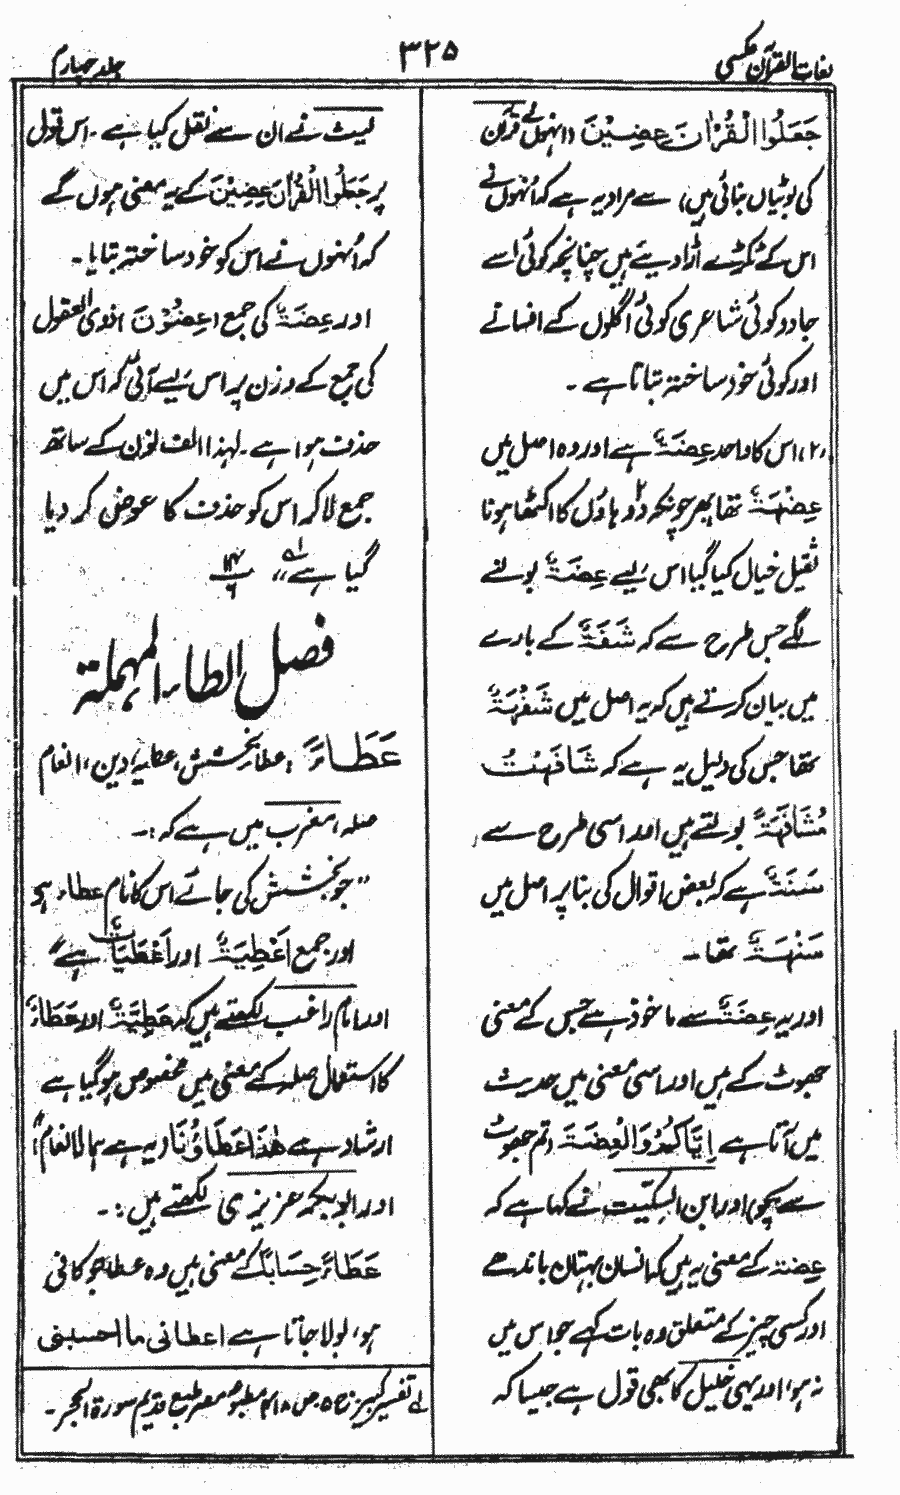 لغات القرآن عکسی
۳۲۵
جلد چہارم
جَعَلُوا الْقُرْاٰنَ عِضِيْنَ (انہوں نے قرآن
کی بوٹیاں بنائی ہیں) سے مراد یہ ہے کہ انہوں نے
اس کے ٹکڑے اڑا دیئے ہیں چنانچہ کوئی اسے
جادو کوئی شاعری کوئی اگلوں کے افسانے
اور کوئی خود ساختہ بتاتا ہے ۔
(۲) اس کا واحد عِضَۃٌ ہے اور وہ اصل میں
عِضْہَۃٌ تھا پھر چونکہ دو ہاؤں کا اکٹھا ہونا
ثقیل خیال کیا گیا اس لیے عِضَۃٌ بولنے
لگے جس طرح سے کہ شَفَۃٌ کے بارے
میں بیان کرتے ہیں کہ یہ اصل میں شَفْہَۃٌ
تھا جس کی دلیل یہ ہے کہ شَافَہْتُ
مُشَافَہَۃً بولتے ہیں اور اسی طرح سے
سَنَۃٌ ہے کہ بعض اقوال کی بنا پر اصل میں
سَنْہَۃٌ تھا ۔
اور یہ عِضَۃٌ سے ماخوذ ہے جس کے معنی
جھوٹ کے ہیں اور اسی معنی میں حدیث
میں آتا ہے اِيَّاكُمْ وَالْعِضَۃَ (تم جھوٹ
سے بچو) اور ابن السکیت نے کہا ہے کہ
عِضۃ کے معنی یہ ہیں کہ انسان بہتان باندھے
اور کسی چیز کے متعلق وہ بات کہے جو اس میں
نہ ہو، اور یہی خلیل کا بھی قول ہے جیسا کہ
لیث نے ان سے نقل کیا ہے ۔ اس قول
پر جَعَلُوا الْقُرْاٰنَ عِضِيْنَ کے یہ معنی ہوں گے
کہ اُنہوں نے اس کو خود ساختہ بتایا ۔
اور عِضَۃٌ کی جمع (عِضُوْنَ) ذوی العقول
کی جمع کے وزن پر اس لیے آئی کہ اس میں
حذف ہوا ہے ۔ لہذا الف نون کے ساتھ
جمع لا کر اس کو حذف کا عوض کر دیا
گیا ہے لہ ،، ۱۴/۶
فصل الطاء المہملۃ
عَطَاءً: عطا، بخشش، عطیہ، دین، انعام
صلہ، مغرب میں ہے کہ :۔
" جو بخشش کی جائے اس کا نام عطاء ہو
اور جمع اَعْطِيَۃٌ اور اَعْطِيَاتٌ ہے "
اور امام راغب لکھتے ہیں کہ عَطِيَّۃٌ اور عَطَاءٌ
کا استعمال صلہ کے معنی میں مخصوص ہو گیا ہے
ارشاد ہے هٰذَا عَطَاؤُنَا (یہ ہے ہمارا انعام)
اور ابو بکر عزیزی لکھتے ہیں :۔
عَطَاءً حِسَابًا کے معنی ہیں وہ عطا جو کافی
ہو، بولا جاتا ہے اعطانی ما احسبنی
لہ تفسیر کبیر ج ۵ ص ۴۱۸ مطبوعہ مصر طبع قدیم سورۃ الحجر ۔